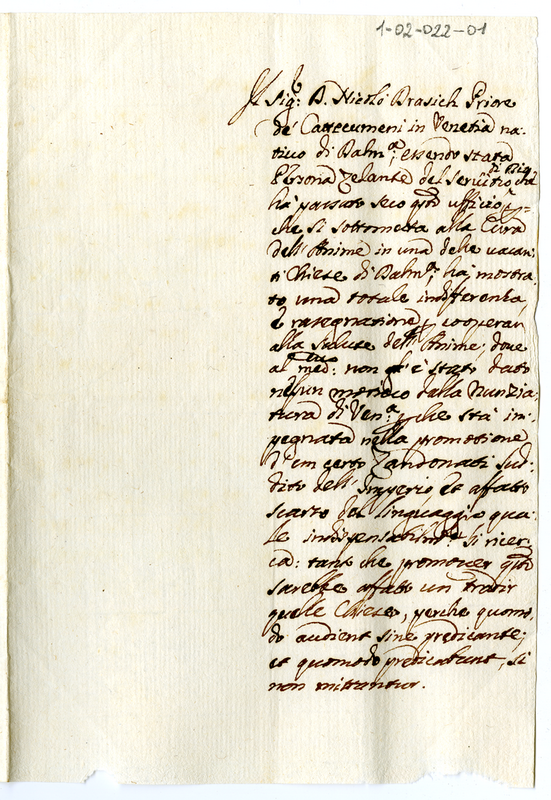 1-02-022-01
Il Sig: D. Nicolò Brasich Priore
de' Cattecumeni in Venetia na:
tivo di Dalm.a, essendo stata
Persona Zelante del Servitio di Dio, che
hà passato seco quest' ufficio, p
che si sottometta alla Cura
dell' Anime in una delle vacan:
ti Chiese di Dalm.a, hà mostra:
to una totale indifferenza,
è rasegnatione p cooperar
alla salute dell' Anime, dove
al med.mo non gl' è stato dato
nesun motivo dalla Nunzia:
tura di Ven.a, p che stà im:
pegnata nella promotione
d' un certo Zandonati sud:
dito dell' Imperio, et affatto
scarso del linguaggio qua:
le indispensabilm.te si ricer:
ca: tant che promover questo
sarebbe affatto un tradir
quelle Chiese, perche quomo:
do audient sine predicante;
et quomodo predicabunt, si
non mittantur.